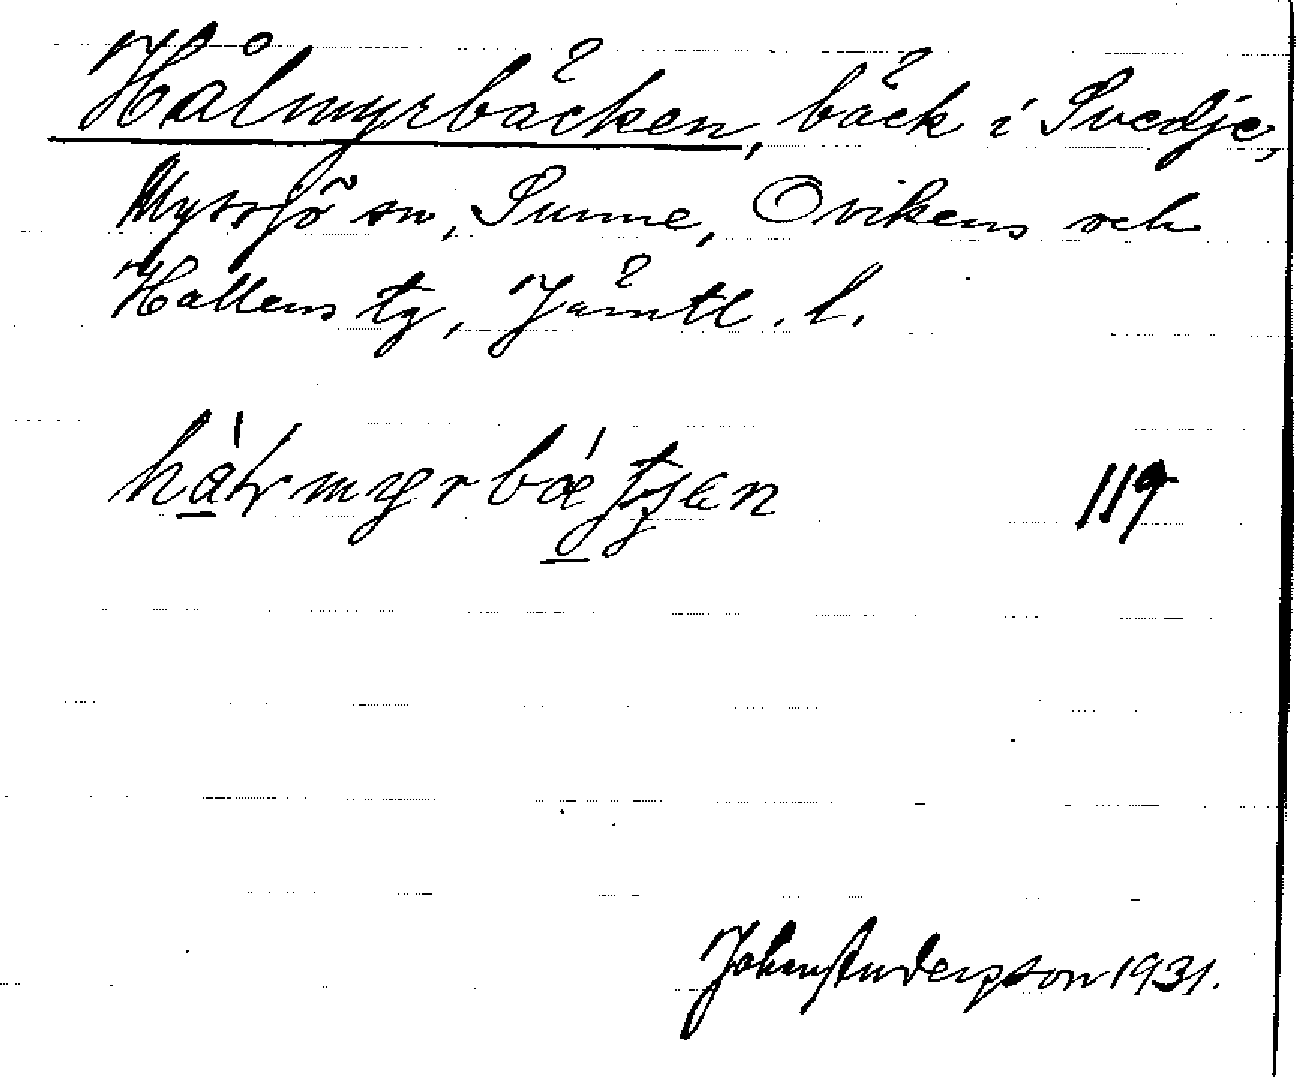 Hålmyrbäcken, bäck i Svedje,
Myssjö sn, Sunne, Ovikens och
Hallens tg, Jämtl. l.
119
John Andersson 1931.